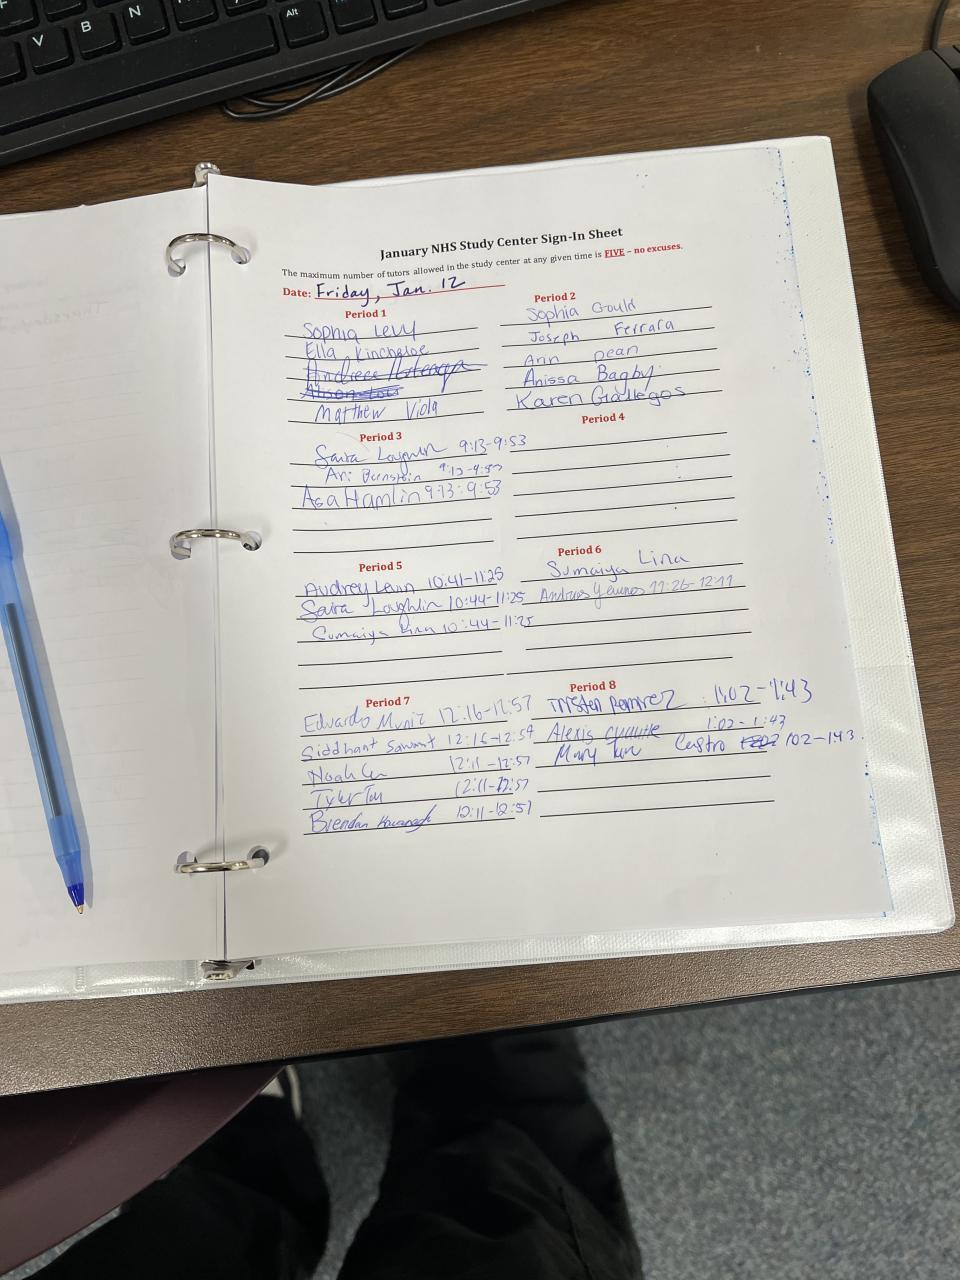 V
B
N
Alt
January NHS Study Center Sign-In Sheet
The maximum number of tutors allowed in the study center at any given time is FIVE – no excuses.
Date: Friday, Jan. 12
Period 1
Sophia Levy
Ella Kincheloe
Matthew Viola
Period 2
Sophia Gould
Joseph Ferrara
Ann Dean
Anissa Bagby
Karen Gallegos
Period 3
Saira Loughlin 9:13-9:53
Ari Bernstein 9:13-9:53
Asa Hamlin 9:13-9:53
Period 4
Period 5
Audrey Levin 10:41-11:25
Saira Loughlin 10:44-11:25
Sumaiya Lina 10:44-11:25
Period 6
Sumaiya Lina
Andrus 11:26-12:11
Period 7
Eduardo Muniz 12:16-12:57
Siddhant Sawant 12:16-12:54
Noah 12:11-12:57
Tyler 12:11-12:57
Brendan Kavanagh 12:11-12:57
Period 8
Tristen Ramirez : 1:02-1:43
Alexis 1:02-1:43
Mary Castro 102-143.